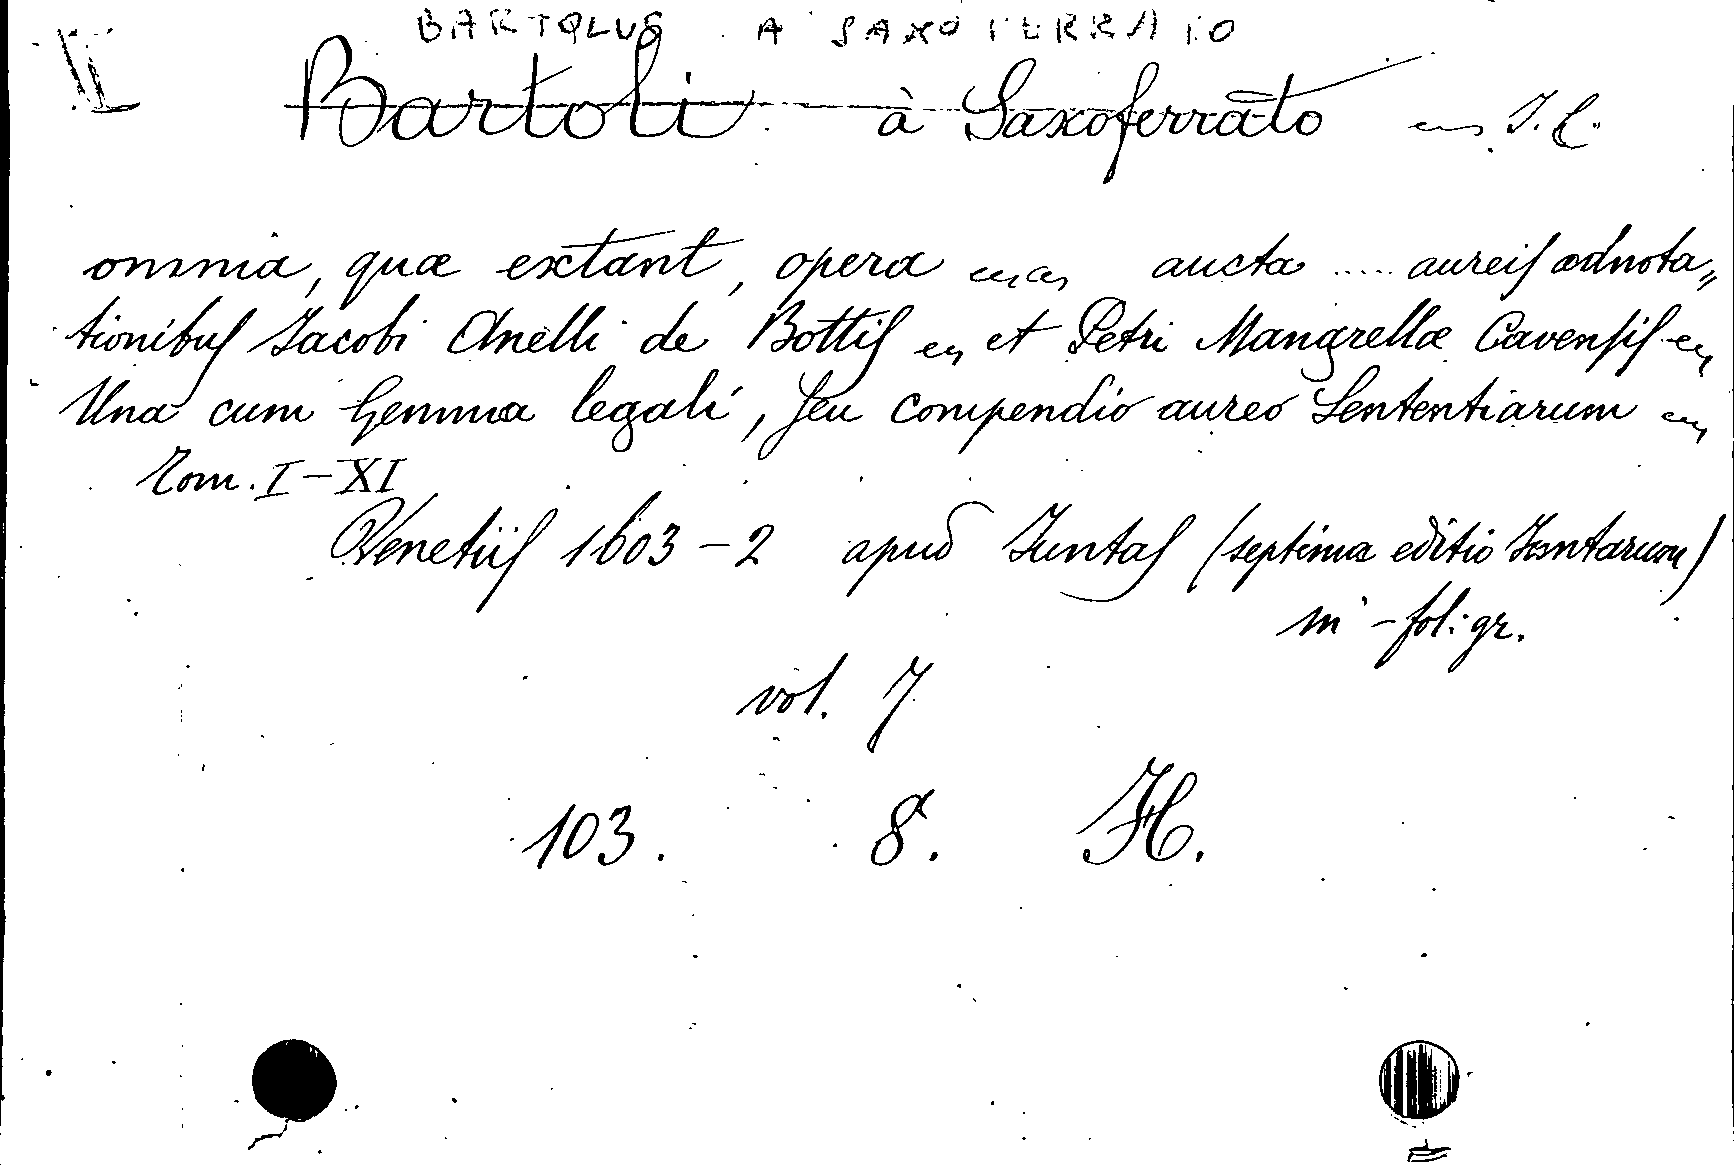 BARTOLUS A SAXOFERRATO
Bartoli à Saxoferrato ... J. C.
omnia, quæ extant, opera ... aucta ..... aureis adnota„
tionibus Jacobi Anelli de Bottis ... et Petri Mangrellæ Cavensis ...
Una cum Gemma legali, seu compendio aureo Sententiarum ...
Tom. I-XI
Venetiis 1603-2 apud Juntas (septima editio Juntarum)
in-fol: gr.
vol. 7
103. 8. H.